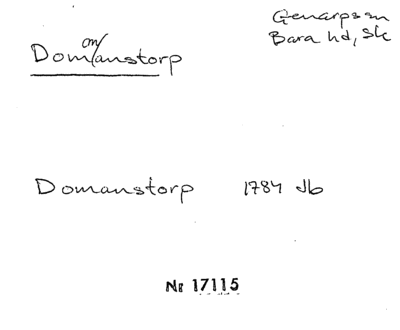 Genarps sn
Bara hd, Sk
on/
Dom/anstorp
Domanstorp 1784 Jb
Nr 17115